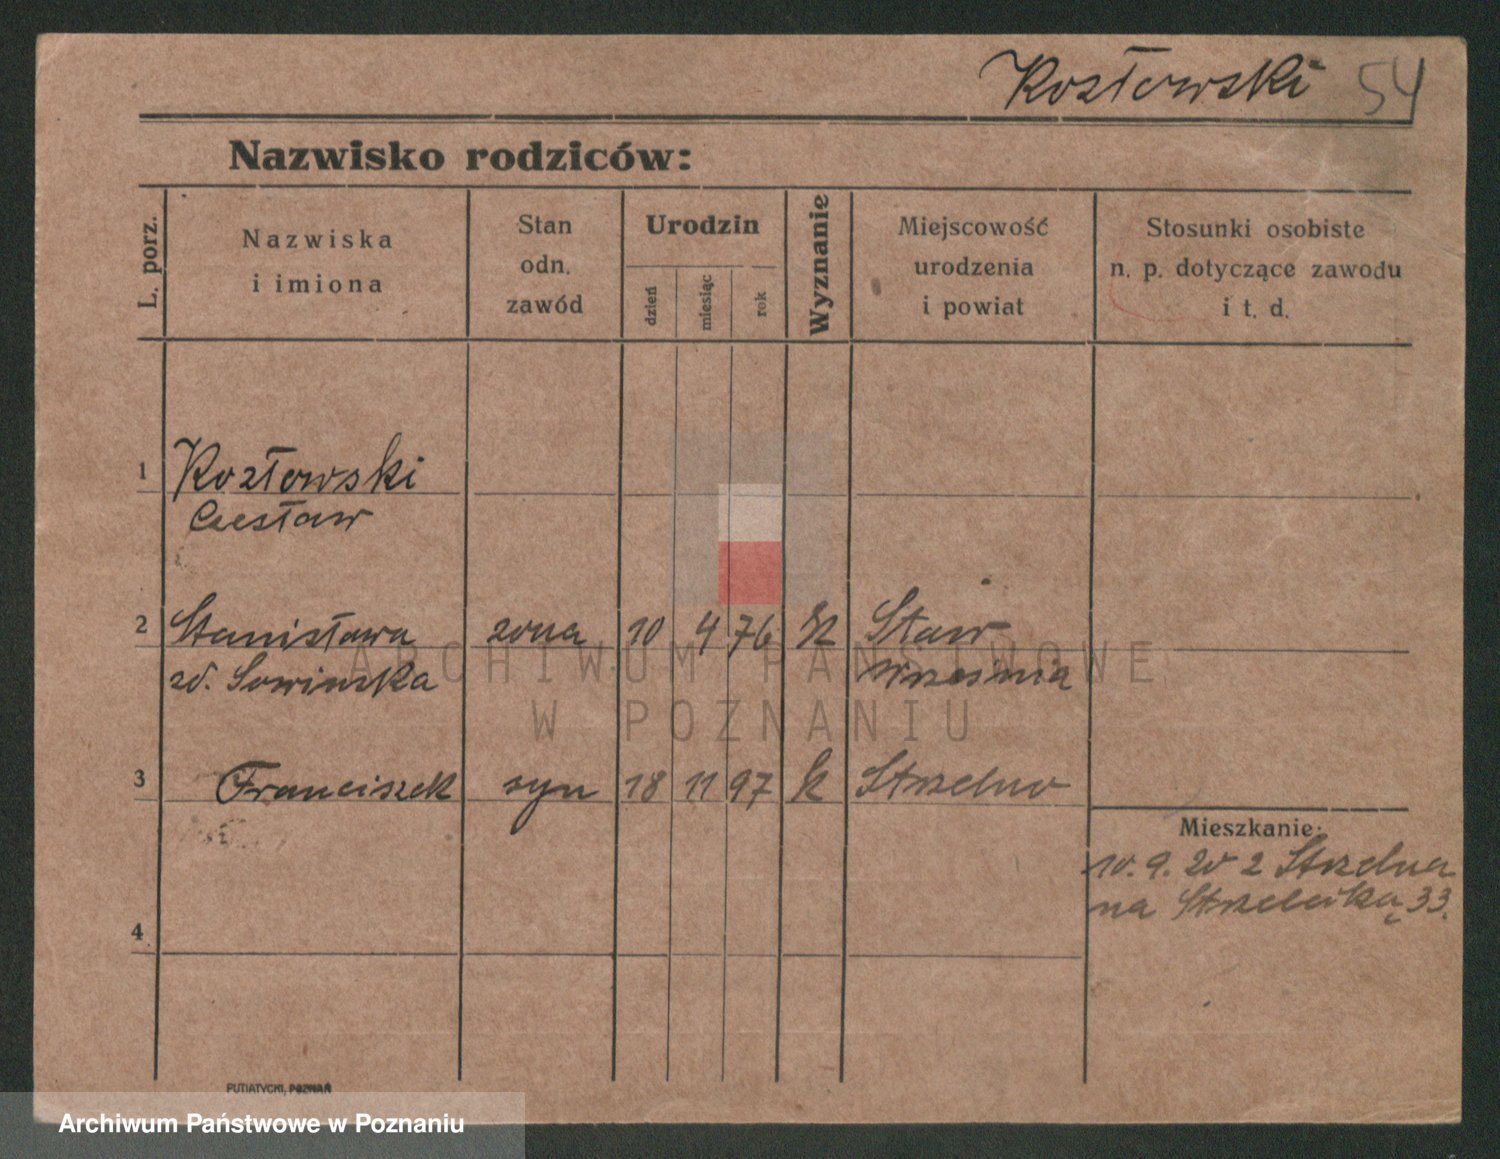 Kozłowski 54
Nazwisko rodziców:
L. porz.
Nazwiska
i imiona
Stan
odn.
zawód
Urodzin
dzień
miesiąc
rok
Wyznanie
Miejscowość
urodzenia
i powiat
Stosunki osobiste
n. p. dotyczące zawodu
i t. d.
1 Kozłowski
Czesław
2 Stanisława żona 10 4 76 k Staw
zd. Sowińska Września
3 Franciszek syn 18 11 97 k Strzelno
Mieszkanie:
10. 9. 20 z Strzelna
na Strzelecką 33.
4
PUTIATYCKI, POZNAŃ
ARCHIWUM PAŃSTWOWE
W POZNANIU
Archiwum Państwowe w Poznaniu